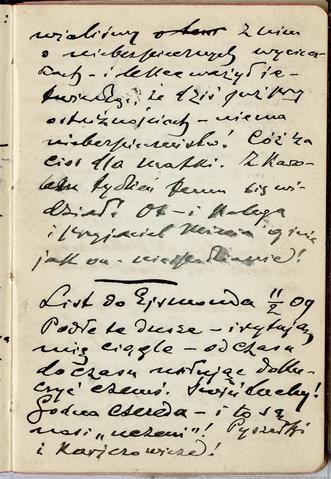 wialiśmy o tem z nim
o niebezpiecznych wyciecz
kach - i lekceważył je -
twierdząc, że dziś już przy
ostrożnościach - niema
niebezpieczeństw! Cóż za
cios dla matki. Z Karo-
tydzień temu się wi-
dział! Ot - i kolega
i przyjaciel ginie
jak on - niespodziewanie!
List do Ejsmonda 11/2 09
Podłe te dusze - irytują
mię ciągle - od czasu
do czasu usiłując doku-
czyć czemś. Świńtuchy!
Godna czereda - i to są
nasi „uczeni"! Pyszałki
i Karjerowicze!